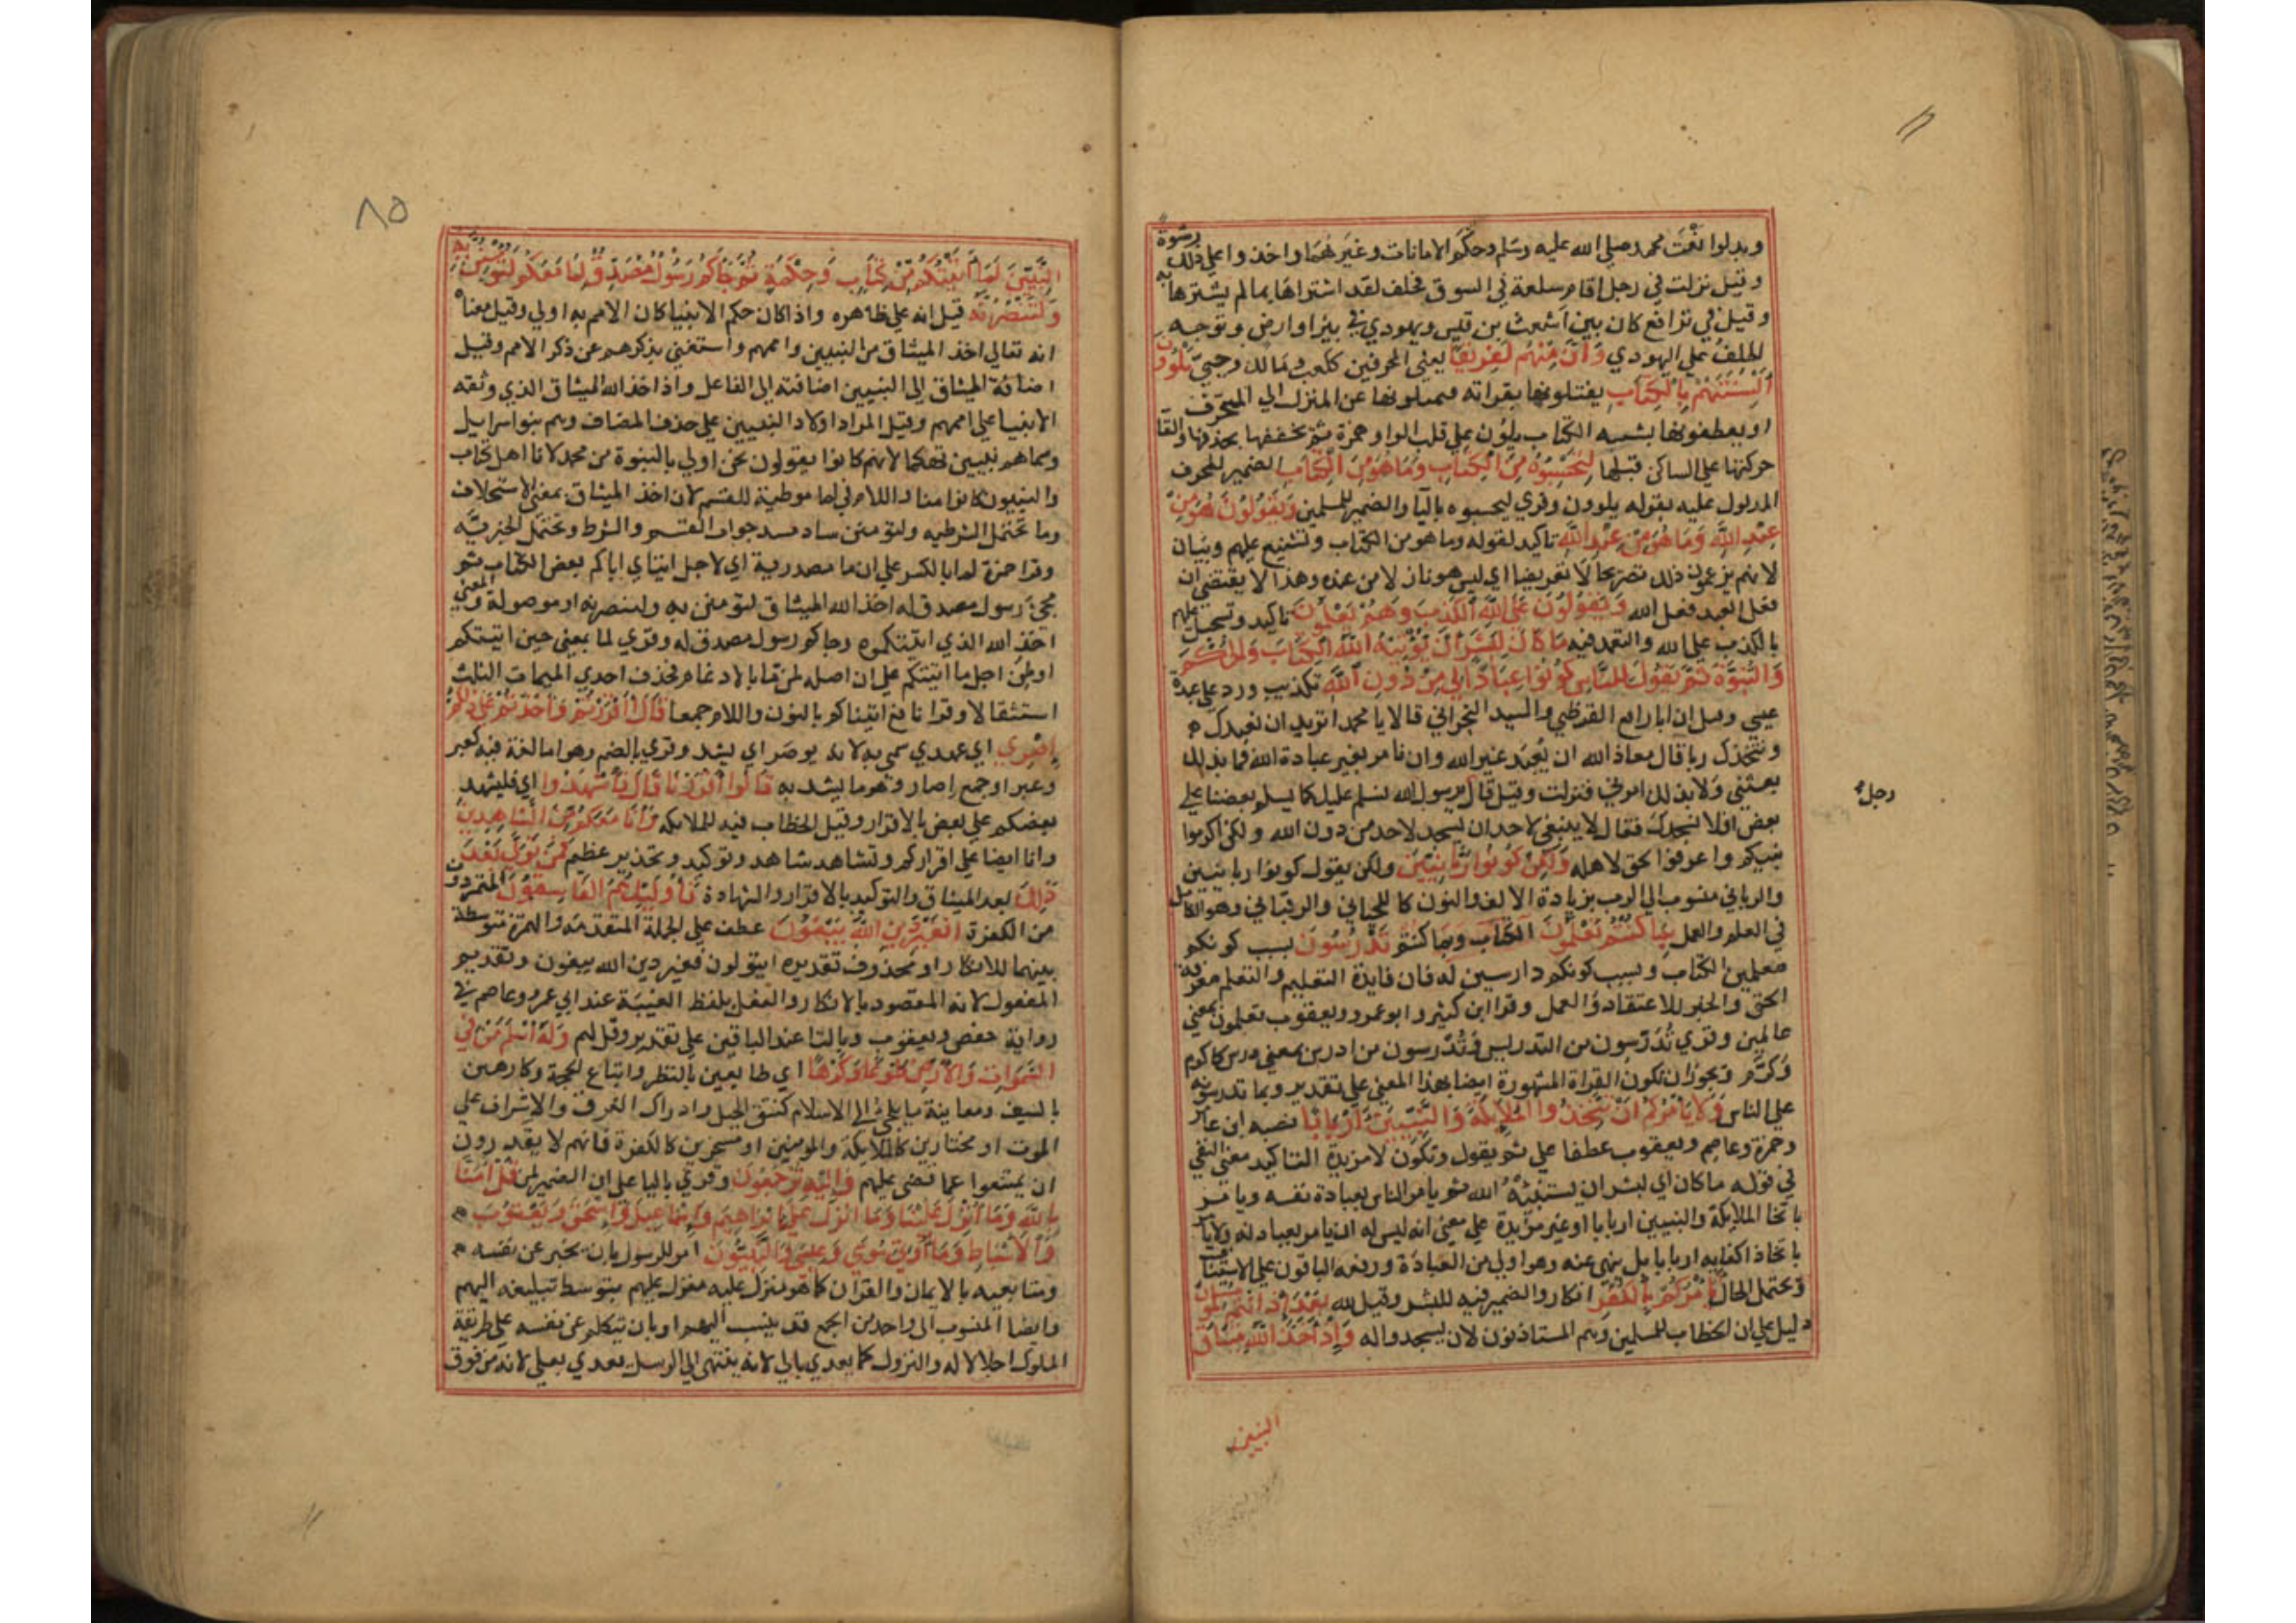 وبدلوا نعت محمد صلي الله عليه وسلم وحكم الامانات وغيرهما واخذوا علي ذلك رشوة
وقيل نزلت في رجل اقام سلعة في السوق فحلف لقد اشتراها بما لم يشترها به
وقيل في ترافع كان بين اشعث بن قيس ويهودي في بئر او ارض وتوجه
الحلف علي اليهودي وَاِنَّ مِنْهُم لَفَرِيقًا يعني المحرفين ككعب ومالك وحيي يَلْوُونَ
اَلْسِنَتَهُمْ بِالْكِتَابِ يفتلونها بقراته فيميلونها عن المنزل الي المحرف
او يعطفونها بشبه الكتاب يلون علي قلب الواو همزة ثم تخفيفها بحذفها والقا
حركتها علي الساكن قبلها لِتَحْسَبُوهُ مِنَ الْكِتَابِ وَمَا هُوَ مِنَ الْكِتَابِ الضمير للمحرف
المدلول عليه بقوله يلوون وقري ليحسبوه باليا والضمير للمسلمين وَيَقُولُونَ هُوَ مِنْ
عِنْدِ اللَّهِ وَمَا هُوَ مِنْ عِنْدِ اللَّهِ تاكيد لقوله وما هو من الكتاب وتشنيع عليهم وبيان
لانهم يزعمون ذلك تصريحا لا تعريضا اي ليس هو نازلا من عنده وهذا لا يقتضي ان
فعل العبد فعل الله وَيَقُولُونَ عَلَى اللَّهِ الْكَذِبَ وَهُمْ يَعْلَمُونَ تاكيد وتسجيل عليهم
بالكذب علي الله والتعمد فيه مَا كَانَ لِبَشَرٍ اَنْ يُؤْتِيَهُ اللَّهُ الْكِتَابَ وَالْحُكْمَ
وَالنُّبُوَّةَ ثُمَّ يَقُولَ لِلنَّاسِ كُونُوا عِبَادًا لِي مِنْ دُونِ اللَّهِ تكذيب ورد علي عبدة
عيسي وقيل ان ابا رافع القرظي والسيد النجراني قالا يا محمد اتريد ان نعبدك
ونتخذك ربا قال معاذ الله ان يُعبد غير الله وان نامر بغير عبادة الله فما بذلك
بعثني ولا بذلك امرني فنزلت وقيل قال يرسول الله نسلم عليك كما يسلم بعضنا علي
رجل
بعض افلا نسجد لك فقال لا ينبغي لاحد ان يسجد لاحد من دون الله ولكن اكرموا
نبيكم واعرفوا الحق لاهله وَلَكِنْ كُونُوا رَبَّانِيِّينَ ولكن يقول كونوا ربانيين
والرباني منسوب الي الرب بزيادة الالف والنون كاللحياني والرقباني وهو الكامل
في العلم والعمل بِمَا كُنْتُمْ تُعَلِّمُونَ الْكِتَابَ وَبِمَا كُنْتُمْ تَدْرُسُونَ بسبب كونكم
معلمين الكتاب وبسبب كونكم دارسين له فان فايدة التعليم والتعلم معرفة
الحق والخير للاعتقاد والعمل وقرا ابن كثير وابو عمرو ويعقوب تعلمون بمعني
عالمين وقري تُدَرِّسون من التدريس وتُدْرِسون من ادرس بمعني درس كاكرم
وكرّم ويجوز ان تكون القراة المشهورة ايضا بهذا المعني علي تقدير وبما تدرسونه
علي الناس وَلَا يَأْمُرَكُمْ اَنْ تَتَّخِذُوا الْمَلَائِكَةَ وَالنَّبِيِّينَ اَرْبَابًا نصبه ابن عامر
وحمزة وعاصم ويعقوب عطفا علي ثم يقول وتكون لا مزيدة لتاكيد معني النفي
في قوله ما كان اي لبشر ان يستنبئه الله ثم يامر الناس بعبادة نفسه ويامر
باتخاذ الملائكة والنبيين اربابا او غير مزيدة علي معني انه ليس له ان يامر بعبادته ولا يامر
باتخاذ اكفايه اربابا بل ينهي عنه وهو اولي من العبادة ورفعه الباقون علي الاستئناف
ويحتمل الحال اَيَأْمُرُكُمْ بِالْكُفْرِ انكار والضمير فيه للبشر وقيل لله بَعْدَ اِذْ اَنْتُمْ مُسْلِمُونَ
دليل علي ان الخطاب للمسلمين وهم المستاذنون لان يسجدوا له وَاِذْ اَخَذَ اللَّهُ مِيثَاقَ
النبيين
٨٥
النَّبِيِّينَ لَمَا آتَيْتُكُمْ مِنْ كِتَابٍ وَحِكْمَةٍ ثُمَّ جَاءَكُمْ رَسُولٌ مُصَدِّقٌ لِمَا مَعَكُمْ لَتُؤْمِنُنَّ بِهِ
وَلَتَنْصُرُنَّهُ قيل انه علي ظاهره واذا كان حكم الانبيا كان الامم به اولي وقيل معناه
انه تعالي اخذ الميثاق من النبيين واممهم واستغني بذكرهم عن ذكر الامم وقيل
اضافة الميثاق الي النبيين اضافته الي الفاعل واذ اخذ الله الميثاق الذي وثقه
الانبيا علي اممهم وقيل المراد اولاد النبيين علي حذف المضاف وهم بنو اسرايل
وسماهم نبيين تهكما لانهم كانوا يقولون نحن اولي بالنبوة من محمد لانا اهل كتاب
والنبيون كانوا منا واللام في لما موطية للقسم لان اخذ الميثاق بمعني الاستحلاف
وما تحتمل الشرطيه ولتؤمنن ساد مسد جواب القسم والشرط وتحتمل الخبريّه
وقرا حمزة لما بالكسر علي ان ما مصدرية اي لاجل ايتاي اياكم بعض الكتاب ثم
مجئ رسول مصدق له اخذ الله الميثاق لتؤمنن به ولتنصرنه او موصولة والمعني
اخذ الله الذي اتيتكموه وجاكم رسول مصدق له وقري لما بمعني حين اتيتكم
او لمن اجل ما اتيتكم علي ان اصله لمن ما بالادغام فحذف احدي الميمات الثلث
استثقالا وقرا نافع اتيناكم بالنون واللام جمعا قَالَ اَاَقْرَرْتُمْ وَاَخَذْتُمْ عَلَى ذَلِكُمْ
اِصْرِي اي عهدي سمي به لانه يوصر اي يشد وقري بالضم وهو اما لغة فيه كعبر
وعبر او جمع اصار وهو ما يشد به قَالُوا اَقْرَرْنَا قَالَ فَاشْهَدُوا اي فليشهد
بعضكم علي بعض بالاقرار وقيل الخطاب فيه للملايكه وَاَنَا مَعَكُمْ مِنَ الشَّاهِدِينَ
وانا ايضا علي اقراركم وتشاهد شاهد وتوكيد وتحذير عظيم فَمَنْ تَوَلَّى بَعْدَ
ذَلِكَ بعد الميثاق والتوكيد بالاقرار والشهادة فَاُولَئِكَ هُمُ الْفَاسِقُونَ المتمردون
من الكفرة اَفَغَيْرَ دِينِ اللَّهِ يَبْغُونَ عطف علي الجملة المتقدمه والهمزة متوسطة
بينهما للانكار او محذوف تقديره ايتولون فغير دين الله يبغون وتقديم
المفعول لانه المقصود بالانكار والفعل بلفظ الغيبة عند ابي عمرو وعاصم في
رواية حفص ويعقوب وبالتا عند الباقين علي تقدير وقل لهم وَلَهُ اَسْلَمَ مَنْ فِي
السَّمَوَاتِ وَالْاَرْضِ طَوْعًا وَكَرْهًا اي طايعين بالنظر واتباع الحجة وكارهين
بالسيف ومعاينة ما يلجئ الي الاسلام كنتق الجبل وادراك الغرق والاشراف علي
الموت او مختارين كالملايكة والمومنين او مسخرين كالكفرة فانهم لا يقدرون
ان يمتنعوا عما قضي عليهم وَاِلَيْهِ تُرْجَعُونَ وقري باليا علي ان الضمير لمن قُلْ اَمَنَّا
بِاللَّهِ وَمَا اُنْزِلَ عَلَيْنَا وَمَا اُنْزِلَ عَلَى اِبْرَاهِيمَ وَاِسْمَاعِيلَ وَاِسْحَقَ وَيَعْقُوبَ
وَالْاَسْبَاطِ وَمَا اُوتِيَ مُوسَى وَعِيسَى وَالنَّبِيُّونَ امر للرسول بان يخبر عن نفسه
ومتابعيه بالايمان والقران كما هو منزل عليه منزل عليهم بتوسط تبليغه اليهم
وايضا المنسوب الي واحد من الجمع قد ينسب اليهم او بان يتكلم عن نفسه علي طريقة
الملوك اجلالا له والنزول كما يعدي بالي لانه ينتهي الي الرسل يعدي بعلي لانه من فوق